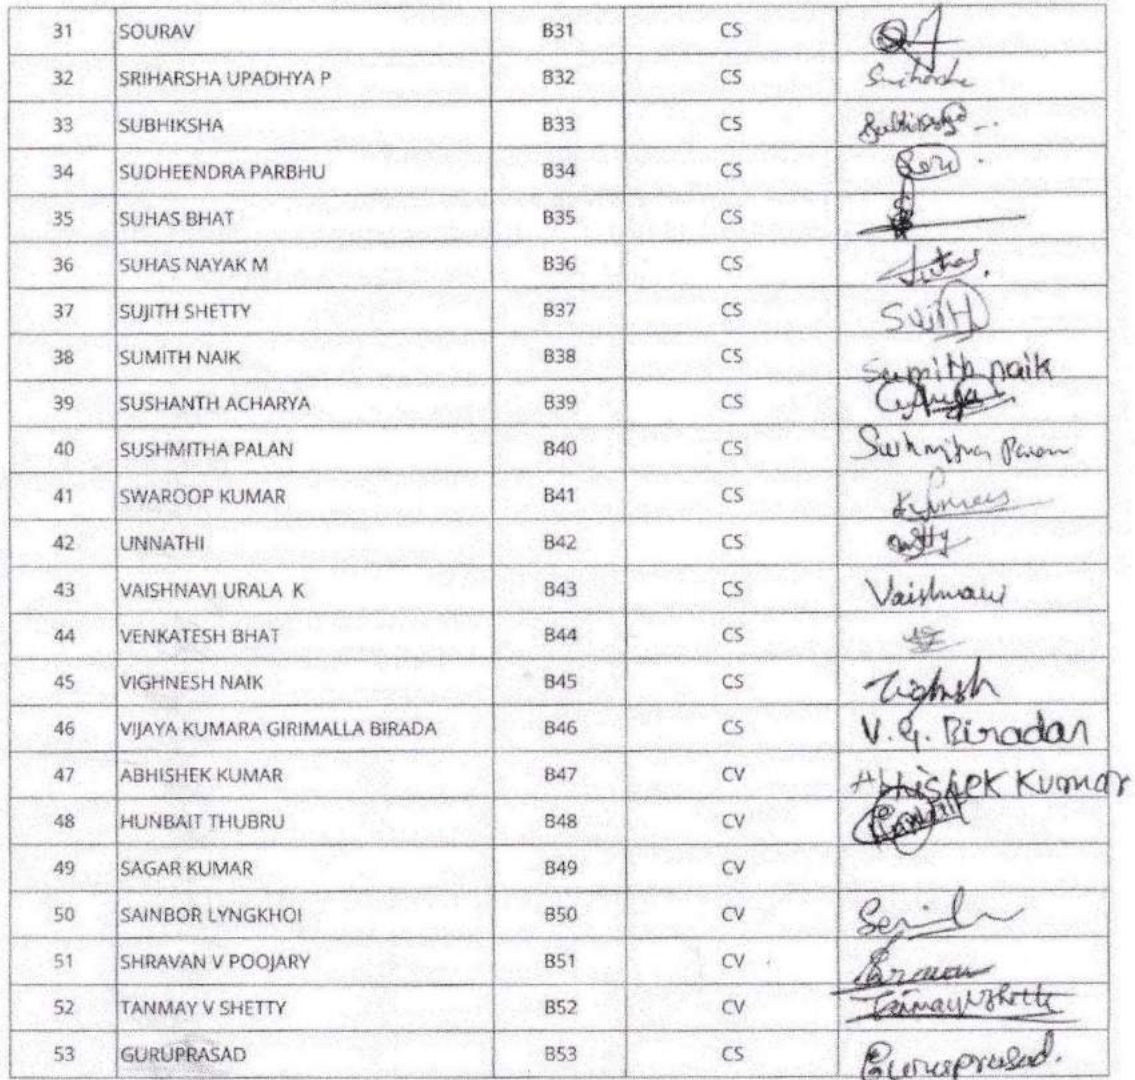 31 SOURAV B31 CS
32 SRIHARSHA UPADHYA P B32 CS Sriharsha
33 SUBHIKSHA B33 CS Subhiksha
34 SUDHEENDRA PARBHU B34 CS
35 SUHAS BHAT B35 CS
36 SUHAS NAYAK M B36 CS Suhas.
37 SUJITH SHETTY B37 CS Sujith
38 SUMITH NAIK B38 CS Sumith naik
39 SUSHANTH ACHARYA B39 CS
40 SUSHMITHA PALAN B40 CS Sushmitha Palan
41 SWAROOP KUMAR B41 CS Kumar
42 UNNATHI B42 CS
43 VAISHNAVI URALA K B43 CS Vaishnavi
44 VENKATESH BHAT B44 CS
45 VIGHNESH NAIK B45 CS Vighnesh
46 VIJAYA KUMARA GIRIMALLA BIRADA B46 CS V.G. Biradar
47 ABHISHEK KUMAR B47 CV Abhishek Kumar
48 HUNBAIT THUBRU B48 CV
49 SAGAR KUMAR B49 CV
50 SAINBOR LYNGKHOI B50 CV
51 SHRAVAN V POOJARY B51 CV
52 TANMAY V SHETTY B52 CV Tanmay V Shetty
53 GURUPRASAD B53 CS Guruprasad.